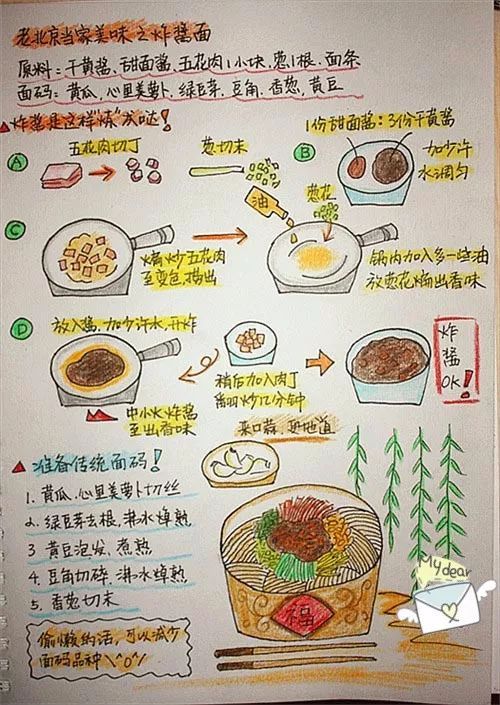 老北京当家美味之炸酱面
原料：干黄酱、甜面酱、五花肉1小块、葱1根、面条
面码：黄瓜、心里美萝卜、绿豆芽、豆角、香葱、黄豆
炸酱是这样“炼”成哒！
A
五花肉切丁
葱切末
B
1份甜面酱：3份干黄酱
加少许
水调匀
C
煸炒五花肉
至变色，捞出
油
葱花
锅内加入多一些油
放葱花煸出香味
D
放入酱，加少许水，开炸
中小火炸酱
至出香味
稍后加入肉丁
翻炒几分钟
炸
酱
OK！
来口蒜，更地道
准备传统面码！
1. 黄瓜、心里美萝卜切丝
2. 绿豆芽去根，沸水焯熟
3 黄豆泡发、煮熟
4. 豆角切碎，沸水焯熟
5. 香葱切末
偷懒的话，可以减少
面码品种 \^o^/
福
My dear